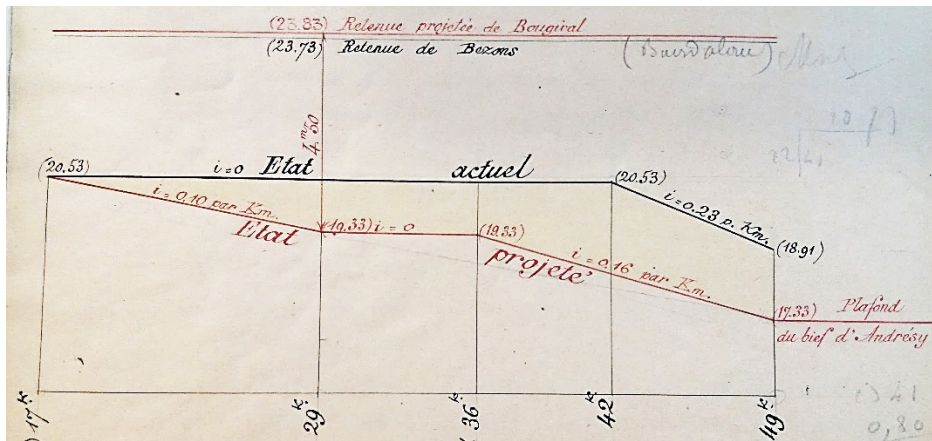 (23.83) Retenue projetée de Bougival
(23.73) Retenue de Bezons
4.m50
(20.53) i=0 Etat actuel (20.53)
i=0,10 par Km.
i=0.23 p. Km.
Etat (19.33) i=0 (19.33)
projeté
i=0.16 par Km.
(18.91)
(17.33) Plafond
du bief d'Andrésy
17k.
29k.
36k.
42k.
49k.
0,80